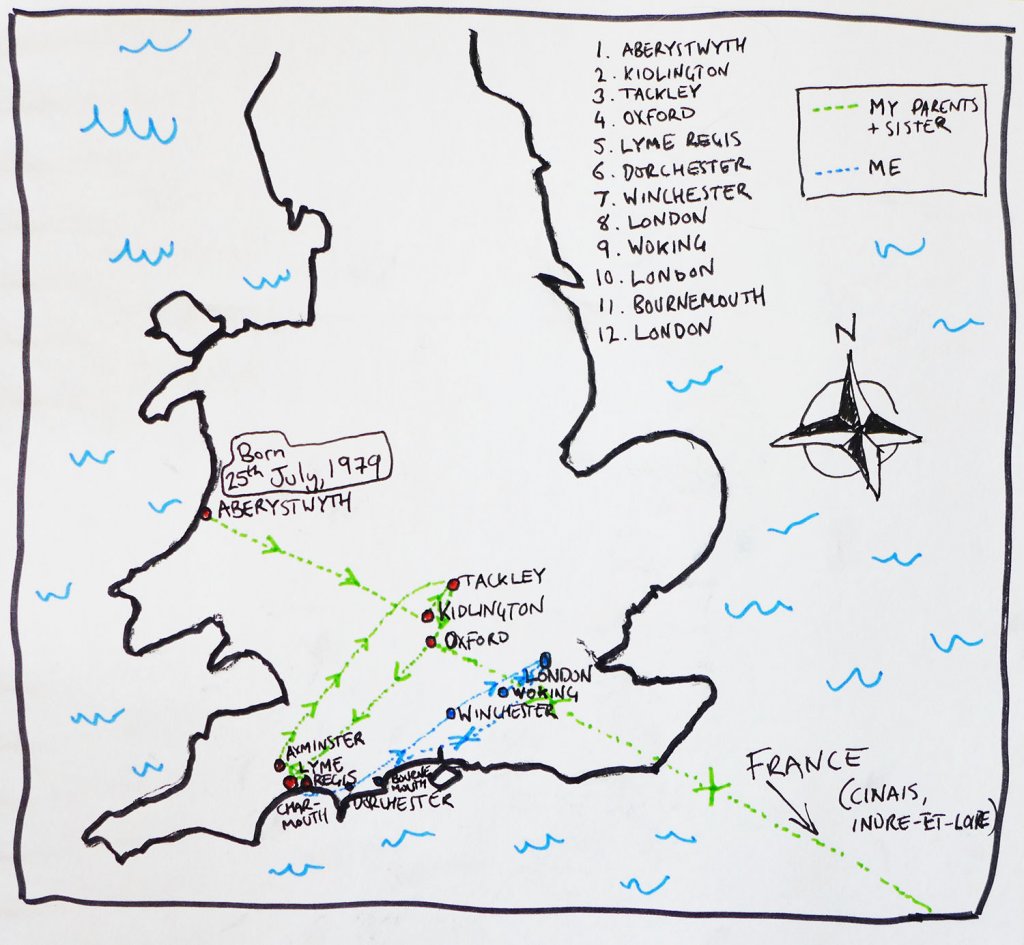 1. ABERYSTWYTH
2. KIDLINGTON
3. TACKLEY
4. OXFORD
5. LYME REGIS
6. DORCHESTER
7. WINCHESTER
8. LONDON
9. WOKING
10. LONDON
11. BOURNEMOUTH
12. LONDON
MY PARENTS
+ SISTER
ME
N
Born
25th July, 1979
ABERYSTWYTH
TACKLEY
KIDLINGTON
OXFORD
LONDON
WOKING
WINCHESTER
AXMINSTER
LYME
REGIS
CHAR-
MOUTH
DORCHESTER
BOURNE
MOUTH
FRANCE
(CINAIS,
INDRE-ET-LOIRE)